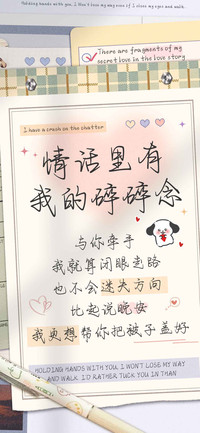 Holding hands with you, I Won't lose my way even if I close my eyes and walk.
There are fragments of my
secret love in the love story
I have a crush on the chatter
情话里有
我的碎碎念
与你牵手
我就算闭眼走路
也不会迷失方向
比起说晚安
我更想帮你把被子盖好
HOLDING HANDS WITH YOU, I WON'T LOSE MY WAY
AND WALK. I'D RATHER TUCK YOU IN THAN